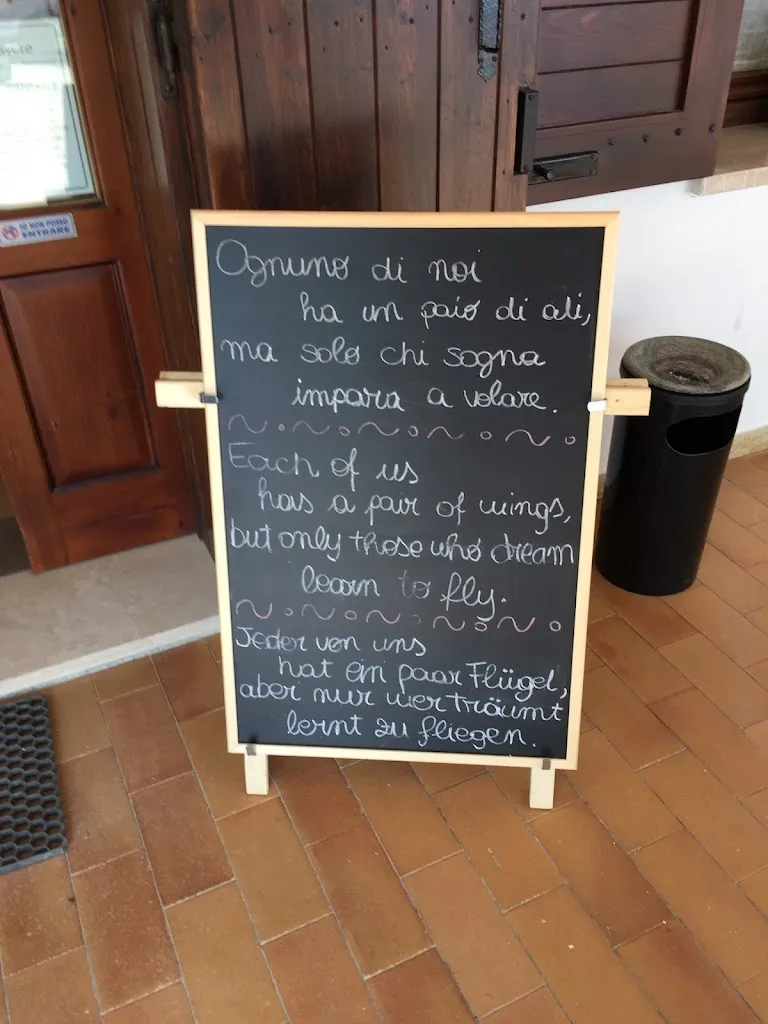 IO NON POSSO
ENTRARE
Ognuno di noi
ha un paio di ali,
ma solo chi sogna
impara a volare.
Each of us
has a pair of wings,
but only those who dream
learn to fly.
Jeder von uns
hat ein paar Flügel,
aber nur wer träumt
lernt zu fliegen.